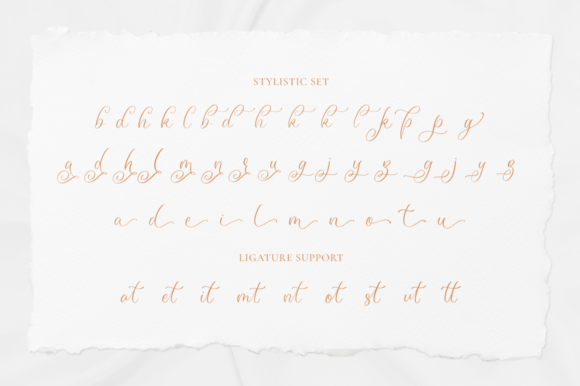 STYLISTIC SET
b d h k l b d h k k l k p p g
a d h l m n r u g j y z g j y z
a d e i l m n o t u
LIGATURE SUPPORT
at et it mt nt ot st ut tt